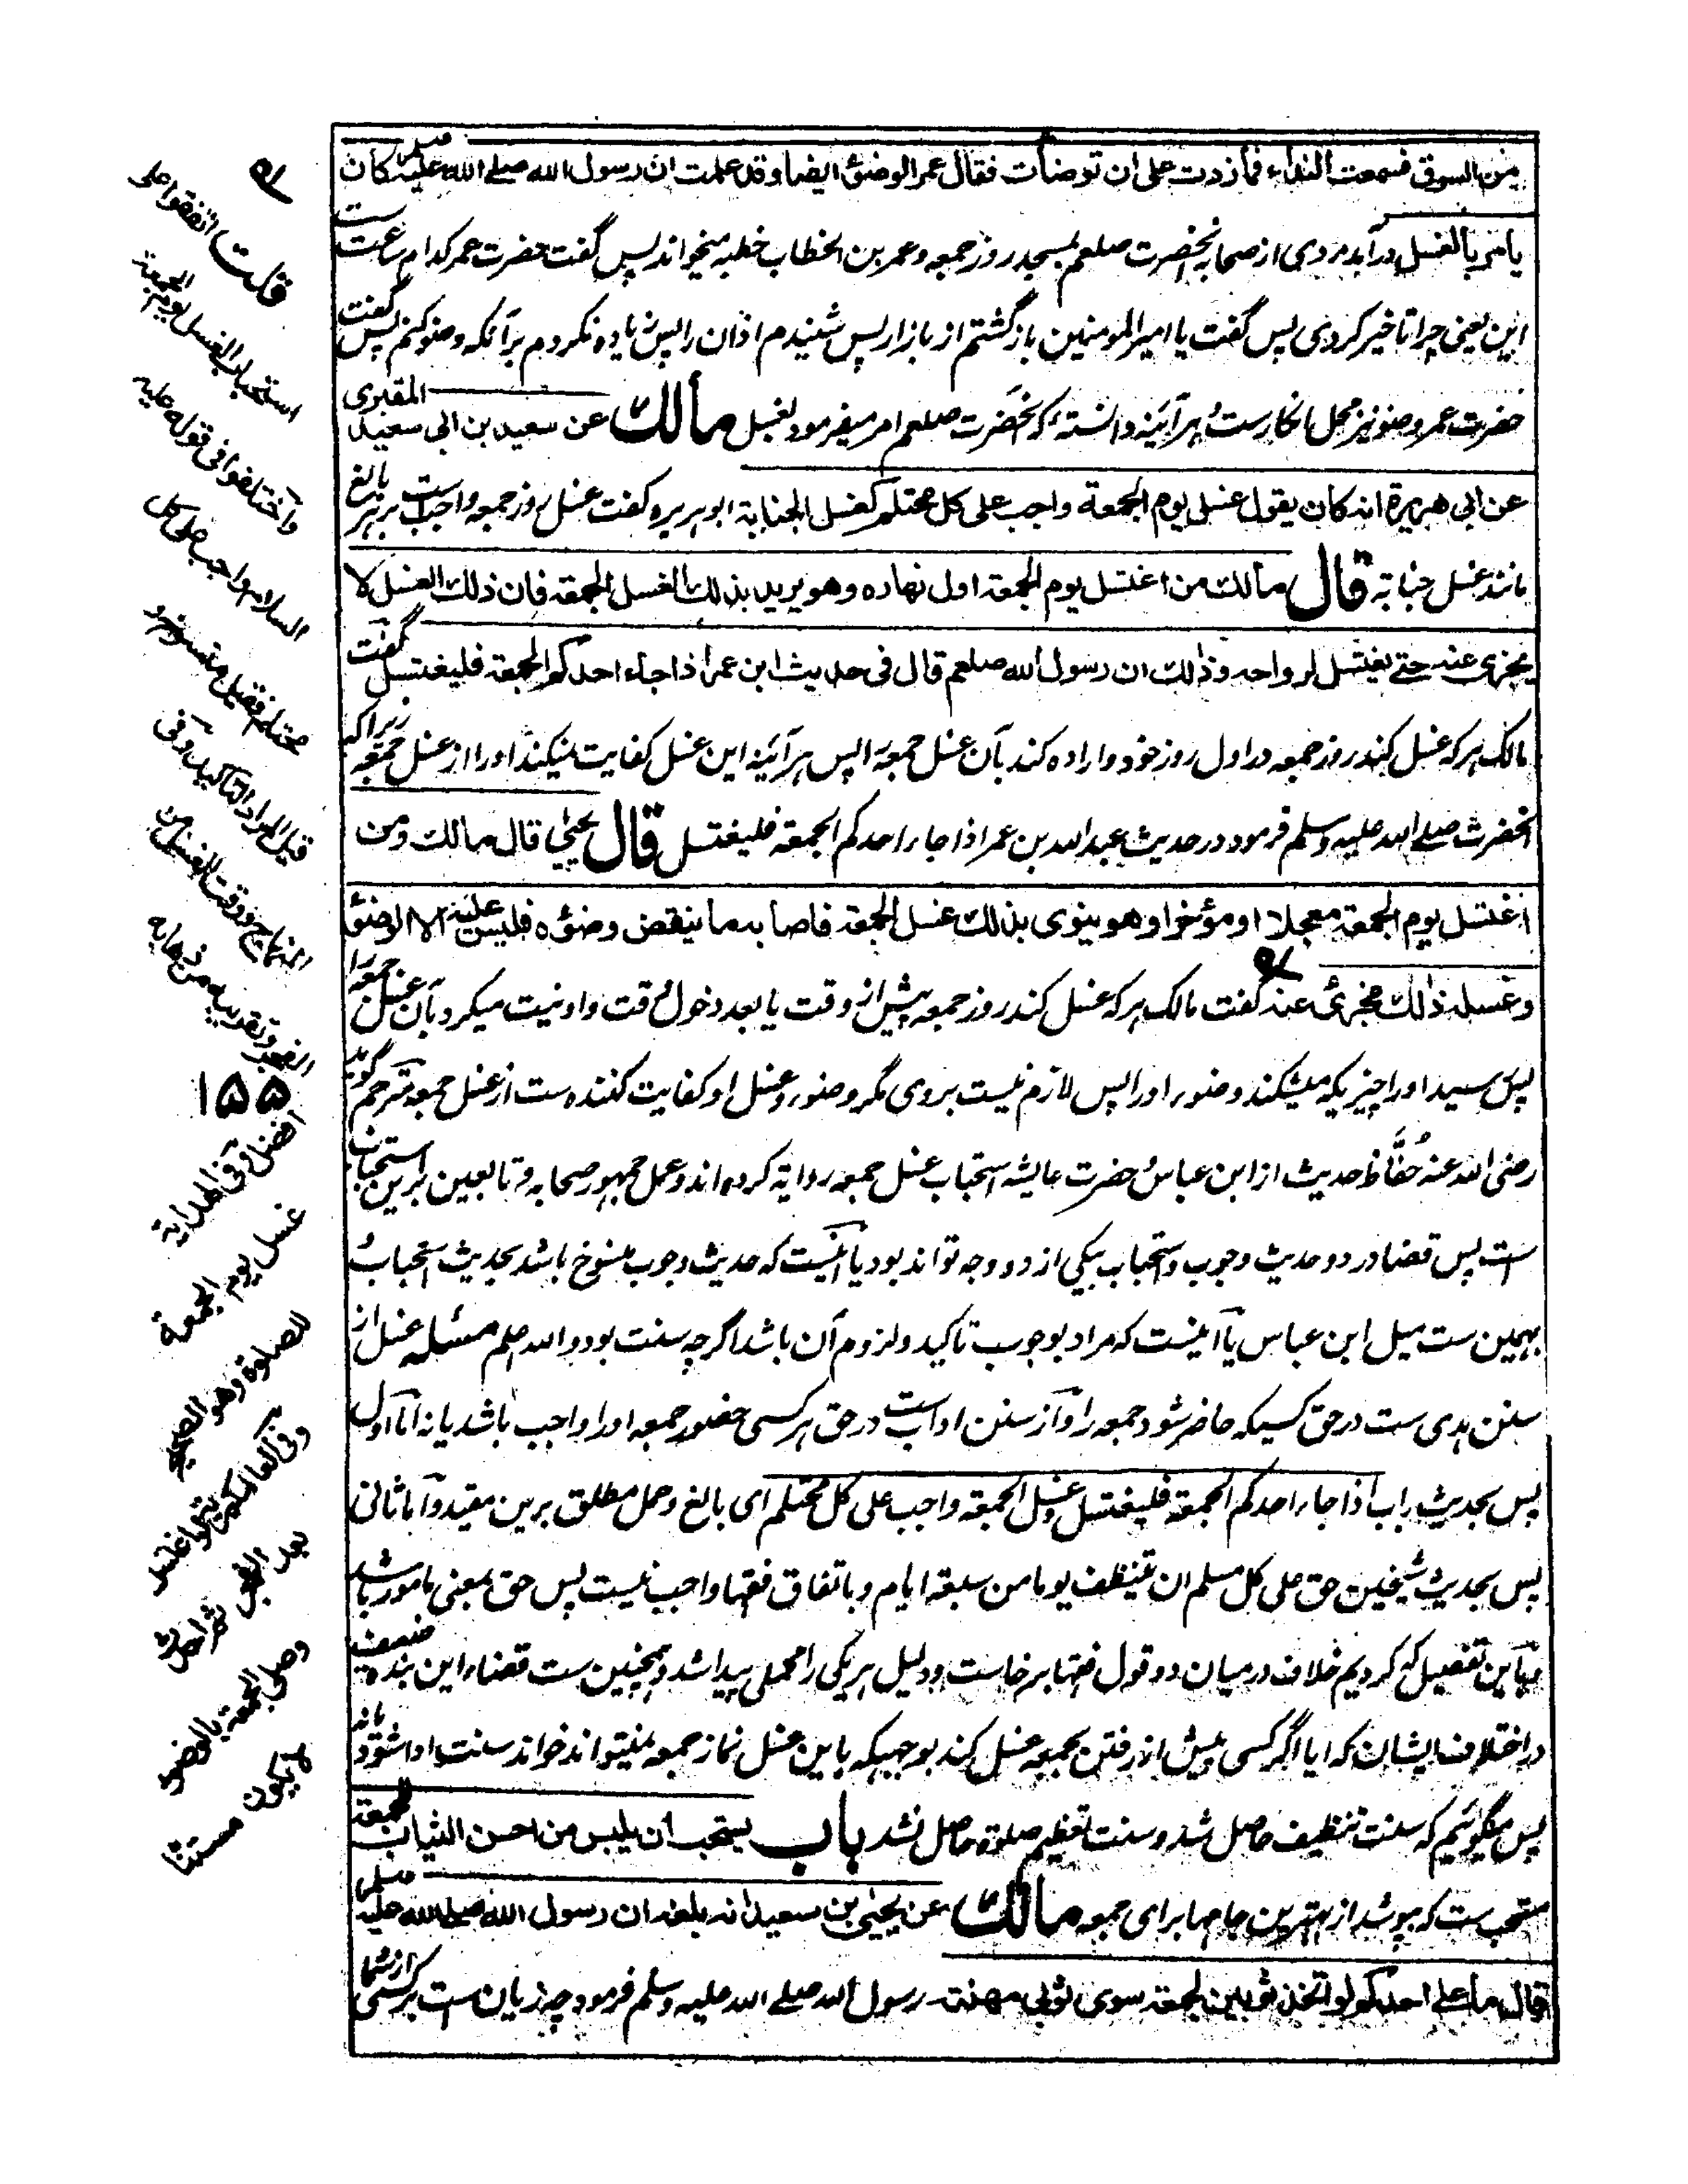 من السوق فسمعت النداء فما زدت على ان توضأت فقال عمر الوضوء ايضا وقد علمت ان رسول الله صلے الله عليه وسلم كان
يامر بالغسل درآمد مردی از صحابۂ آنحضرت صلعم بمسجد روز جمعه و عمر بن الخطاب خطبه میخواند پس گفت حضرت عمر کدام ساعت ست
این یعنی چرا تاخیر کردی پس گفت یا امیر المومنین بازگشتم از بازار پس شنیدم اذان را پس زیاده نکردم برآنکه وضو کنم پس گفت
حضرت عمر وضو نیز محل انکار ست و هر آئینه دانستۀ که آنحضرت صلعم امر میفرمود بغسل مالك عن سعيد بن ابى سعيد المقبرى
عن ابى هريرة انه كان يقول غسل يوم الجمعة واجب على كل محتلم كغسل الجنابة ابو هریره گفت غسل روز جمعه واجب ست بر هر بالغ
مانند غسل جنابة قال مالك من اغتسل يوم الجمعة اول نهاره وهو يريد بذلك الغسل الجمعة فان ذلك الغسل لا
يجزئ عنه حتے يغتسل لرواحه وذلك ان رسول الله صلعم قال فى حديث ابن عمر اذا جاء احدكم الجمعة فليغتسل گفت
مالک هر که غسل کند روز جمعه در اول روز خود و اراده کند بآن غسل جمعه را پس هر آئینه این غسل کفایت نمیکند او را از غسل جمعه زیراکه
آنحضرت صلے الله علیه وسلم فرمود در حدیث عبدالله بن عمر اذا جاء احدکم الجمعة فلیغتسل قال يحيى قال مالك ومن
اغتسل يوم الجمعة معجلا او مؤخرا وهو ينوى بذلك غسل الجمعة فاصابه ما ينقض وضوءه فليس عليه الا الوضوء
وغسله ذلك مجزئ عنه گفت مالک هر که غسل کند روز جمعه پیش از وقت یا بعد دخول وقت و او نیت میکرد بآن غسل جمعه را
پس رسید او را چیزیکه میشکند وضو را پس لازم نیست بروی مگر وضو و غسل او کفایت کننده ست از غسل جمعه مترجم گوید
رضی الله عنه حُفَّاظ حدیث از ابن عباس و حضرت عایشه استحباب غسل جمعه روایة کرده اند و عمل جمهور صحابه و تابعین برین استحباب
ست پس قضا در دو حدیث وجوب و استحباب بیکی از دو وجه تواند بود یا آنیست که حدیث وجوب منسوخ باشد بحدیث استحباب و
بهمین ست میل ابن عباس یا آنیست که مراد بوجوب تاکید و لزوم آن باشد اگرچه سنت بود والله اعلم مسئله غسل از
سنن هدی ست در حق کسیکه حاضر شود جمعه را و از سنن اداب ست در حق هر کسی حضور جمعه او را واجب باشد یا نه اما اول
پس بحدیث باب اذا جاء احدکم الجمعة فلیغتسل غسل الجمعة واجب علی کل محتلم ای بالغ و حمل مطلق برین مقید و اما ثانی
پس بحدیث شیخین حق علی کل مسلم ان یتنظف یوما من سبعة ایام و باتفاق فقها واجب نیست پس حق بمعنی مامور باشد
و باین تفصیل که کردیم خلاف درمیان دو قول فقها برخاست و دلیل هر یکی را محملی پیدا شد و همچنین ست قضاء این بنده ضعیف
در اختلاف ایشان که ایا اگر کسی پیش از رفتن بجمعه غسل کند بوجهیکه باین غسل نماز جمعه نمیتواند خواند سنت ادا شود یا نه
پس میگوئیم که سنت تنظیف حاصل شد و سنت تعظیم صلوة حاصل نشد باب يستحب ان يلبس من احسن الثياب للجمعة
مستحب ست که بپوشد از بهترین جامها برای جمعه مالك عن يحيى بن سعيد انه بلغه ان رسول الله صلے الله عليه وسلم
قال ما علے احدكم لو اتخذ ثوبين لجمعة سوى ثوبى مهنته رسول الله صلے الله علیه وسلم فرمود چه زیان ست بر کسی از شما
قلت اتفقوا على
استحباب الغسل يوم الجمعة
واختلفوا فى قوله عليه
السلام واجب على كل
محتلم فقيل منسوخ و
قيل المراد التاكيد وفى
المنهاج ووقت الغسل من
الفجر وتقريبه من ذهابه
۱۵۵
افضل وفى الهداية
غسل يوم الجمعة
للصلوة وهو الصحيح
وفى العالمگيرية لو اغتسل
بعد الفجر ثم احدث
وصلى الجمعة بالوضوء
لا يكون مستنا